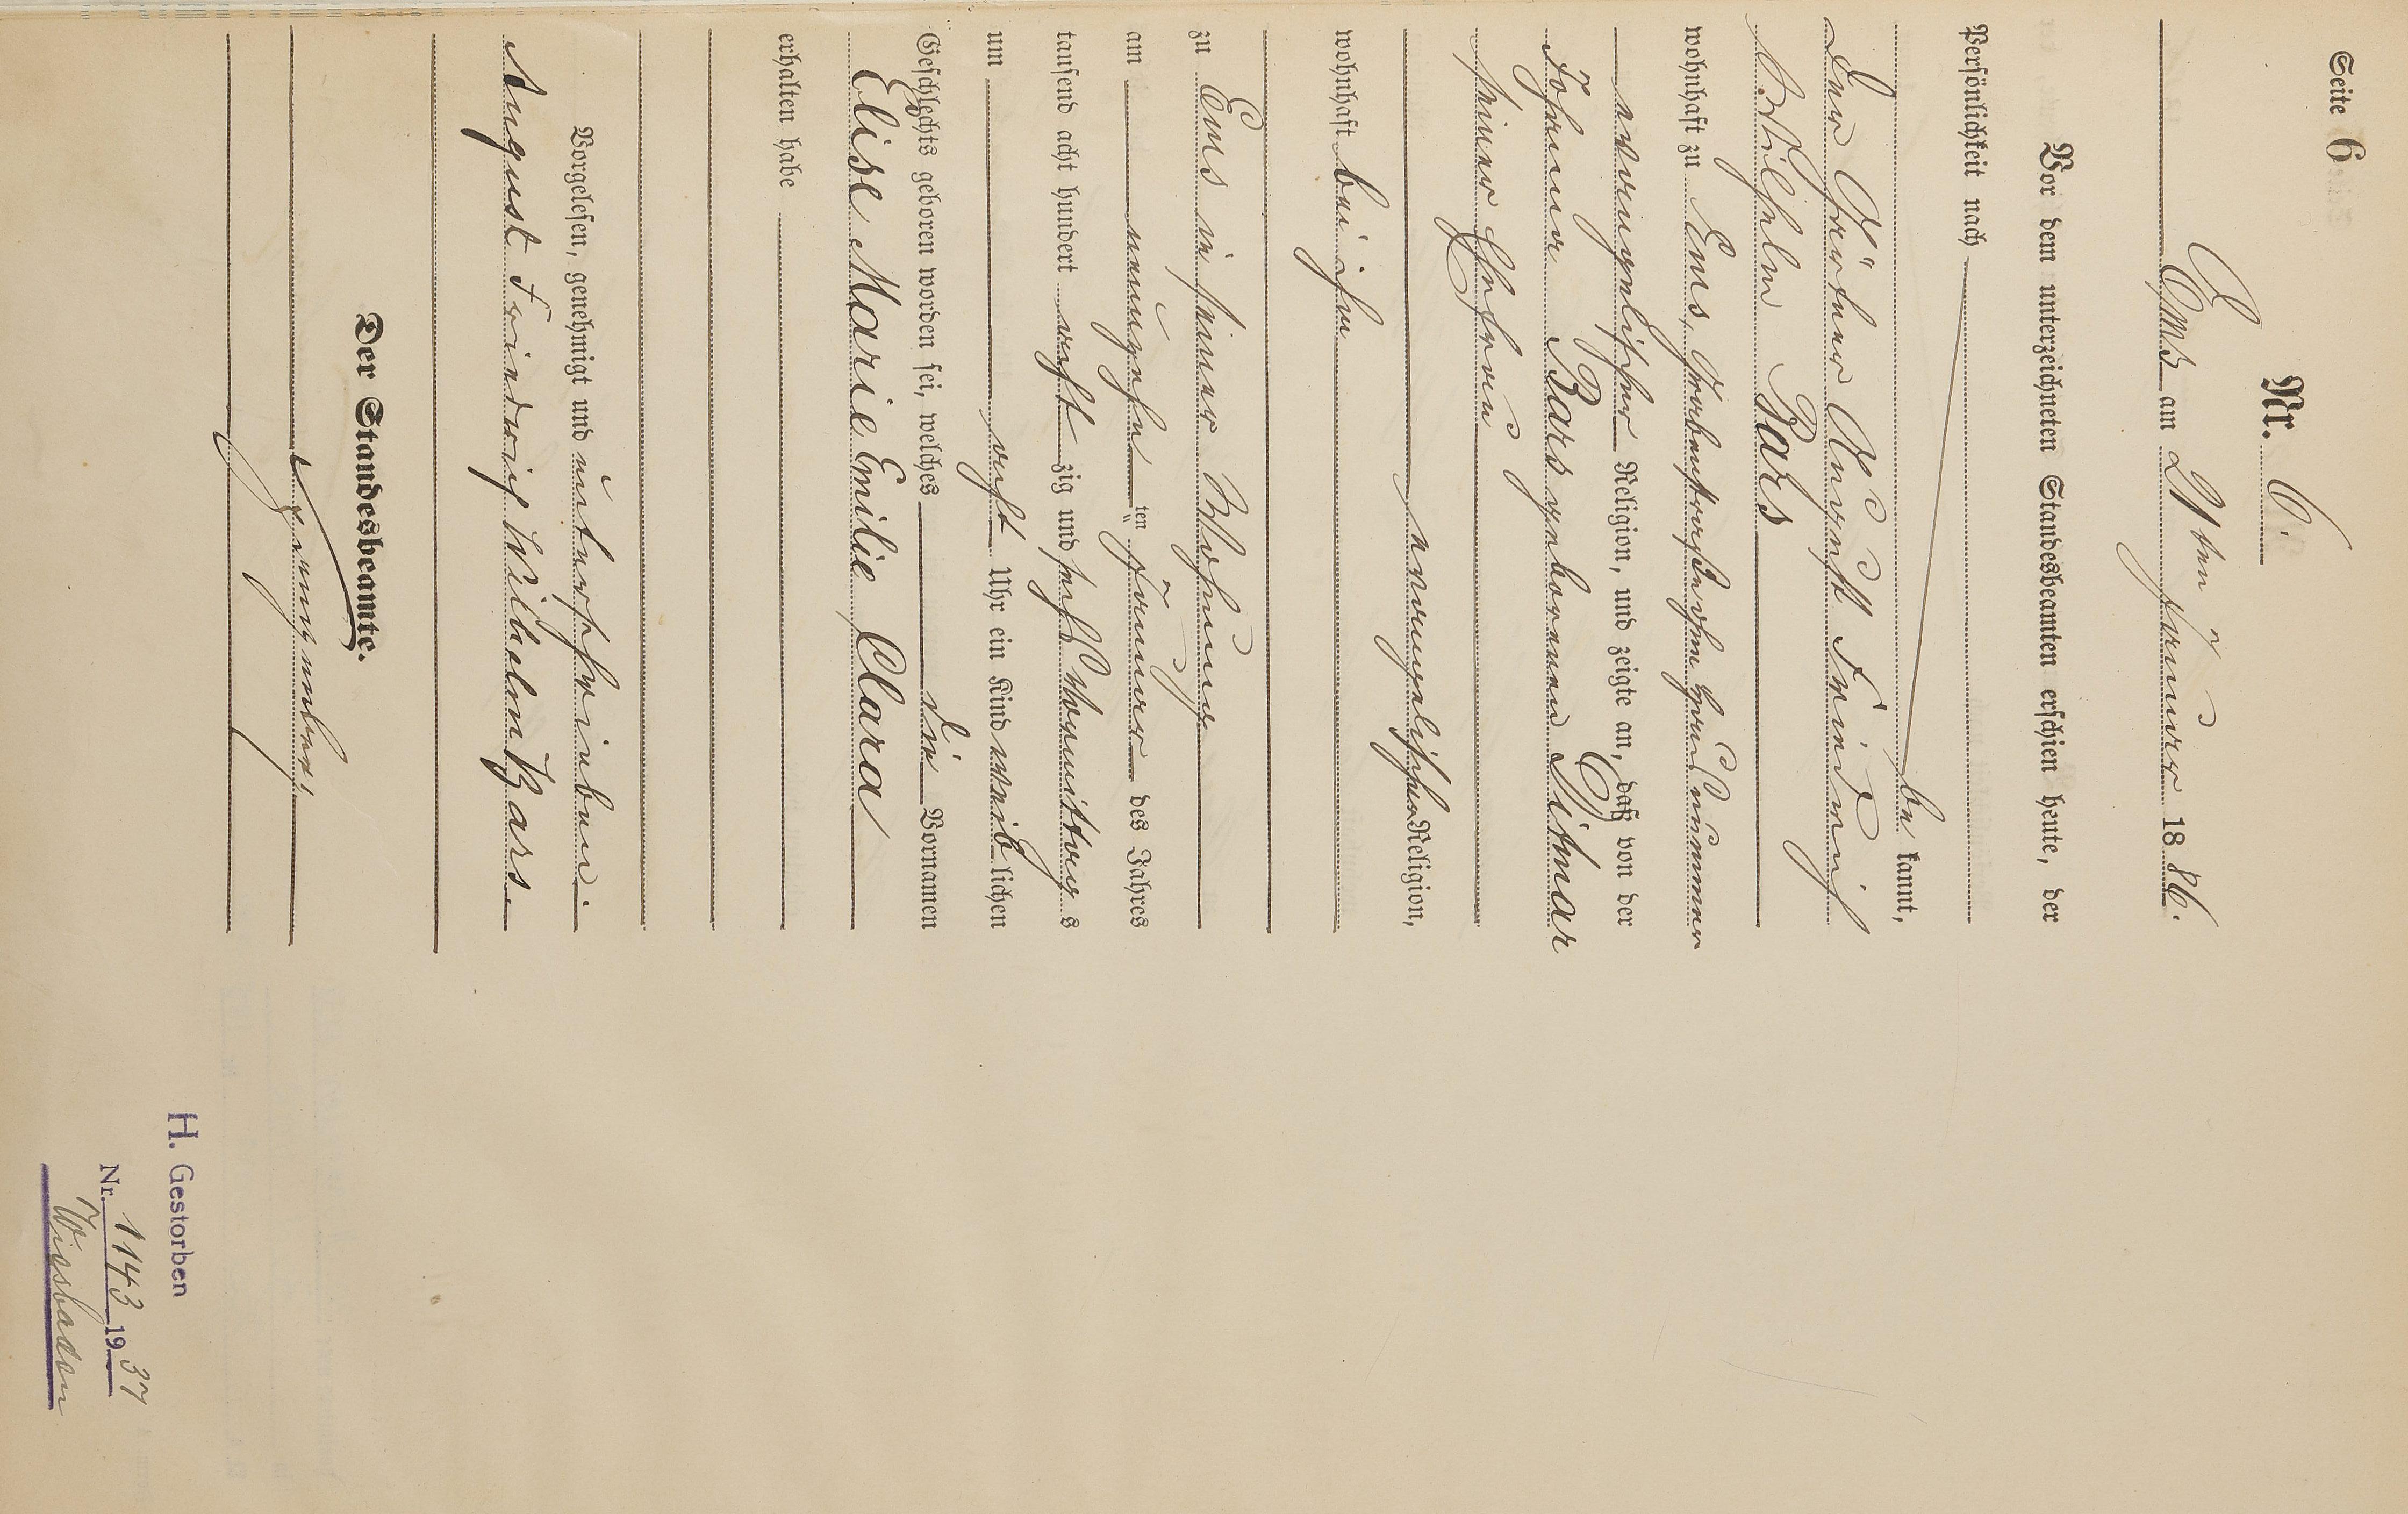 Seite 6
Nr. 6.
Ems am 21ten Januar 1886.
Vor dem unterzeichneten Standesbeamten erschien heute, der
Persönlichkeit nach
be kannt,
der Gärtner August Friedrich
Wilhelm Bars
wohnhaft zu Ems, Grabenstraße
evangelischer Religion, und zeigte an, daß von der
Johanna Bars geborenen Ditmar
seiner Ehefrau
evangelischer Religion,
wohnhaft bei ihm
zu Ems in seiner Wohnung
am neunzehn ten Januar des Jahres
tausend acht hundert acht zig und sechs Vormittag s
um acht Uhr ein Kind weib lichen
Geschlechts geboren worden sei, welches die Vornamen
Elise Marie Emilie Clara
erhalten habe
Vorgelesen, genehmigt und unterschrieben.
August Friedrich Wilhelm Bars.
Der Standesbeamte.
H. Gestorben
Nr. 1143 1937
Wiesbaden